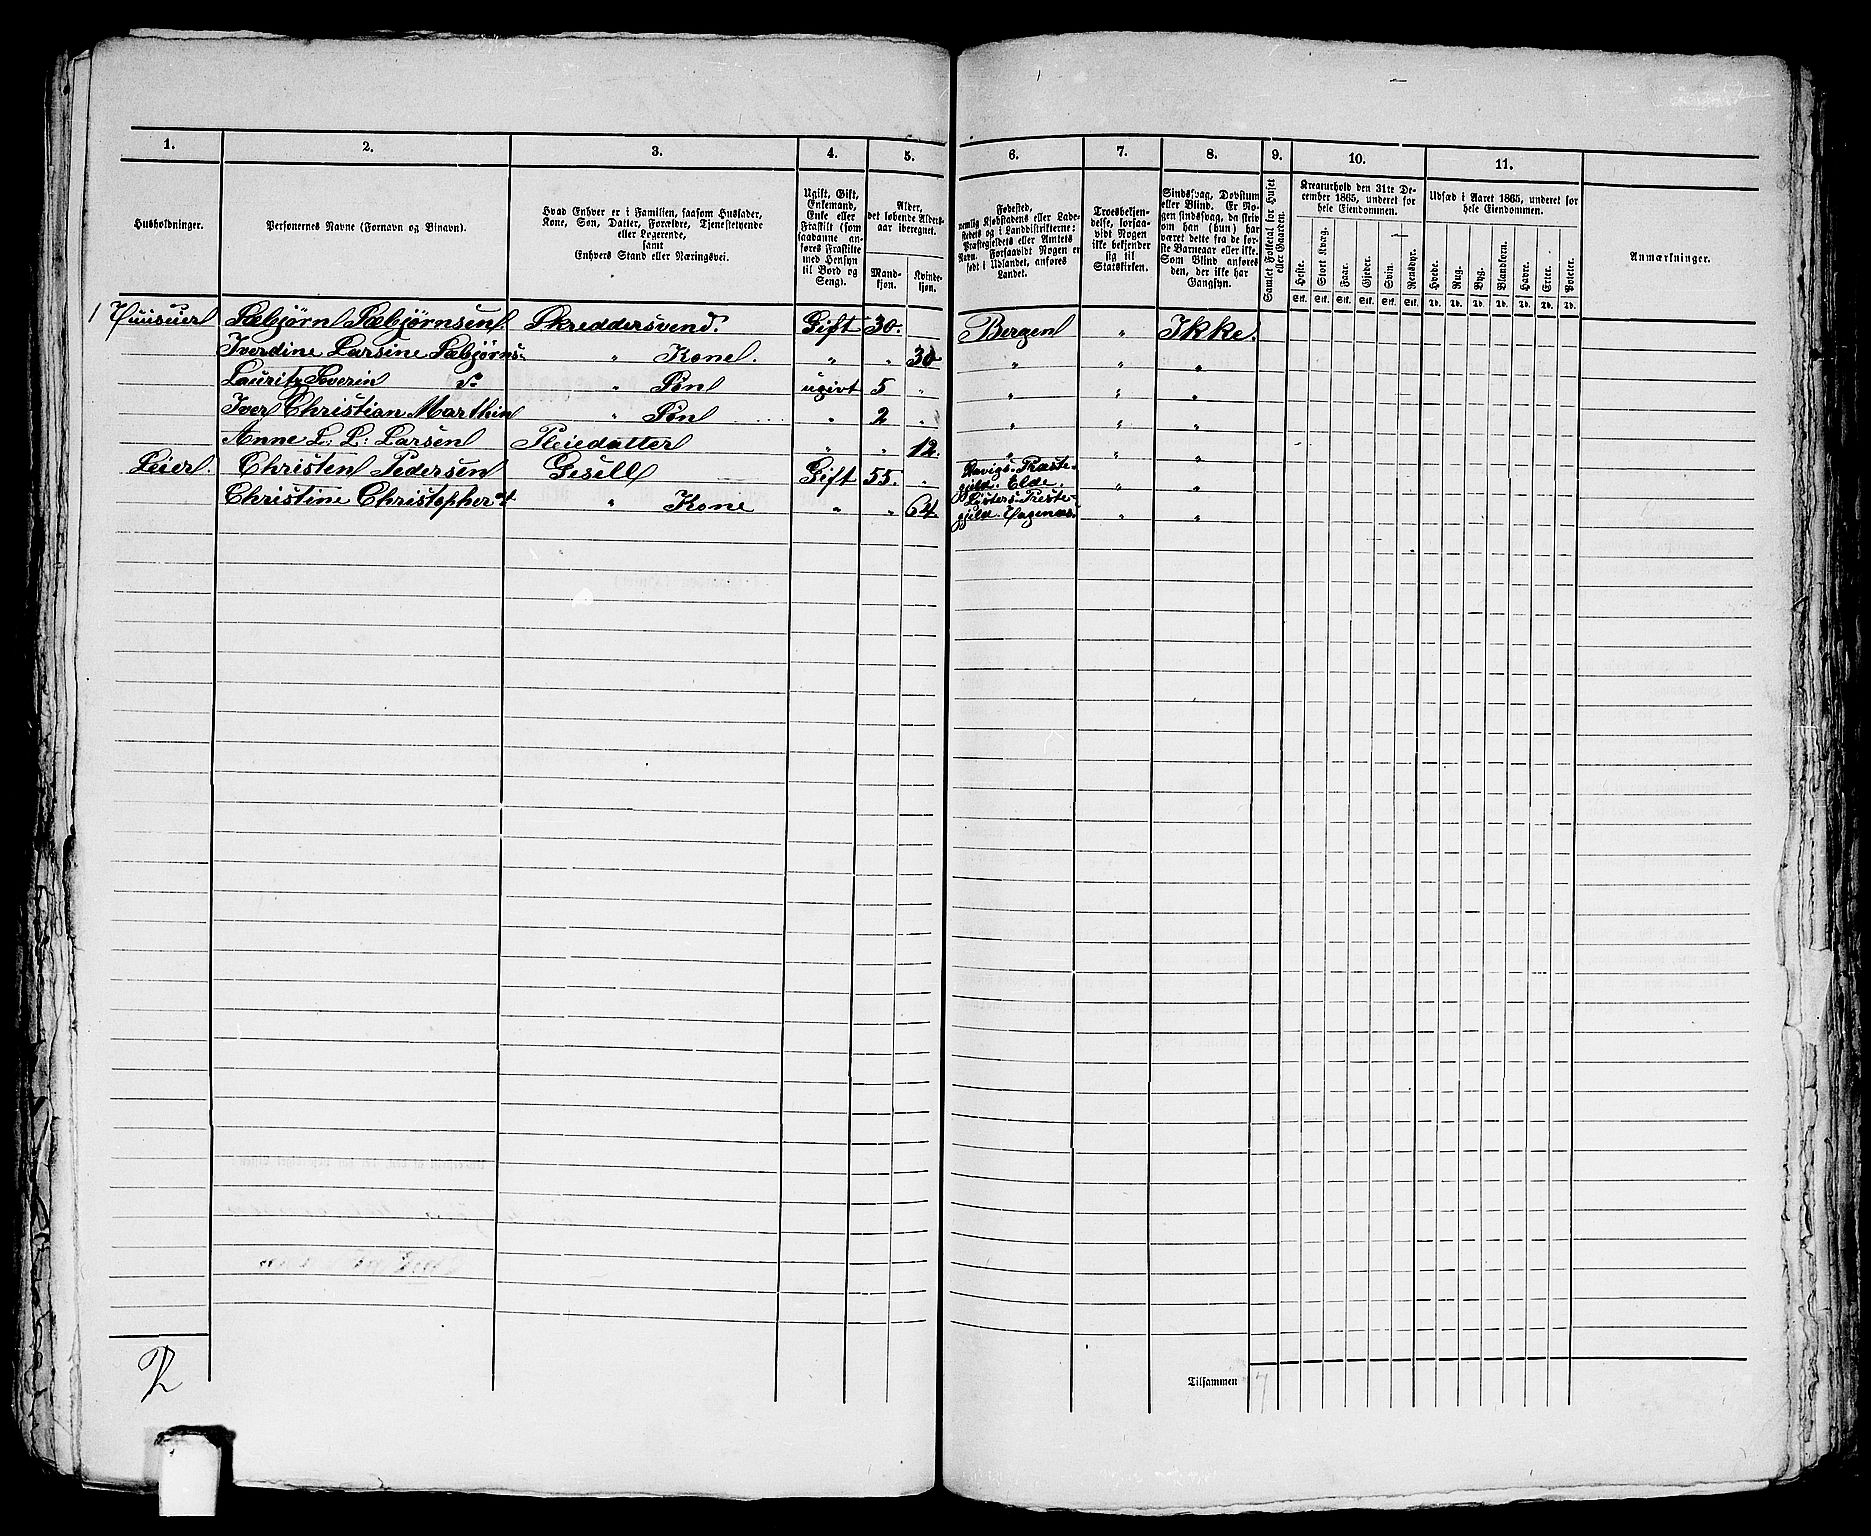 1. 2. 3. 4. 5. 6. 7. 8. 9. 10. 11.
Husholdninger.
Personernes Navne (Fornavn og Binavn).
Hvad Enhver er i Familien, saasom Husfader,
Kone, Søn, Datter, Forældre, Tjenestetyende
eller Logerende,
samt
Enhvers Stand eller Næringsvei.
Ugift, Gift,
Enkemand,
Enke eller
Fraskilt (som
saadanne an-
føres Fraskilte
med Hensyn
til Bord og
Seng).
Alder,
det løbende Alders-
aar iberegnet.
Mand-
kjøn.
Kvinde-
kjøn.
Fødested,
nemlig Kjøbstadens eller Lade-
stedets og i Landdistrikterne:
Præstegjeldets eller Amtets
Navn. Forsaavidt Nogen er
født i Udlandet, anføres
Landet.
Troesbekjen-
delse, forsaa-
vidt Nogen
ikke bekjender
sig til
Statskirken.
Sindssvag, Døvstum
eller Blind. Er No-
gen sindssvag, da skriv
om han (hun) har
været dette fra de før-
ste Barneaar eller ikke.
Som Blind anføres
den, der ikke har
Gangsyn.
Samlet Folketal for Huset
eller Gaarden.
Kreaturhold den 31te De-
cember 1865, underet for
hele Eiendommen.
Heste. Stort Kvæg. Faar. Gjeder. Svin. Rensdyr.
Stk. Stk. Stk. Stk. Stk. Stk.
Udsæd i Aaret 1865, underet for
hele Eiendommen.
Hvede. Rug. Byg. Blandkorn. Havre. Erter. Poteter.
Td. Td. Td. Td. Td. Td. Td.
Anmærkninger.
1 Huusuer Sæbjørn Sæbjørnsen Skreddersvend. Gift 30. Bergen " Ikke.
Iverdine Larsine Sæbjørns- " Kone. " " 30 " " "
Lauritz Severin S: " Søn ugivt 5 " " " "
Iver Christian Marthin " Søn " 2 " " " "
Anne L: L: Larsen Pleiedatter " " 12. " " "
Leier. Christen Pedersen Gesell Gift 55. " Præste-
gjeld. Elde. " "
Christine Christopher dt " Kone " " 64. Lysters Preste-
gjeld. " "
Tilsammen 7